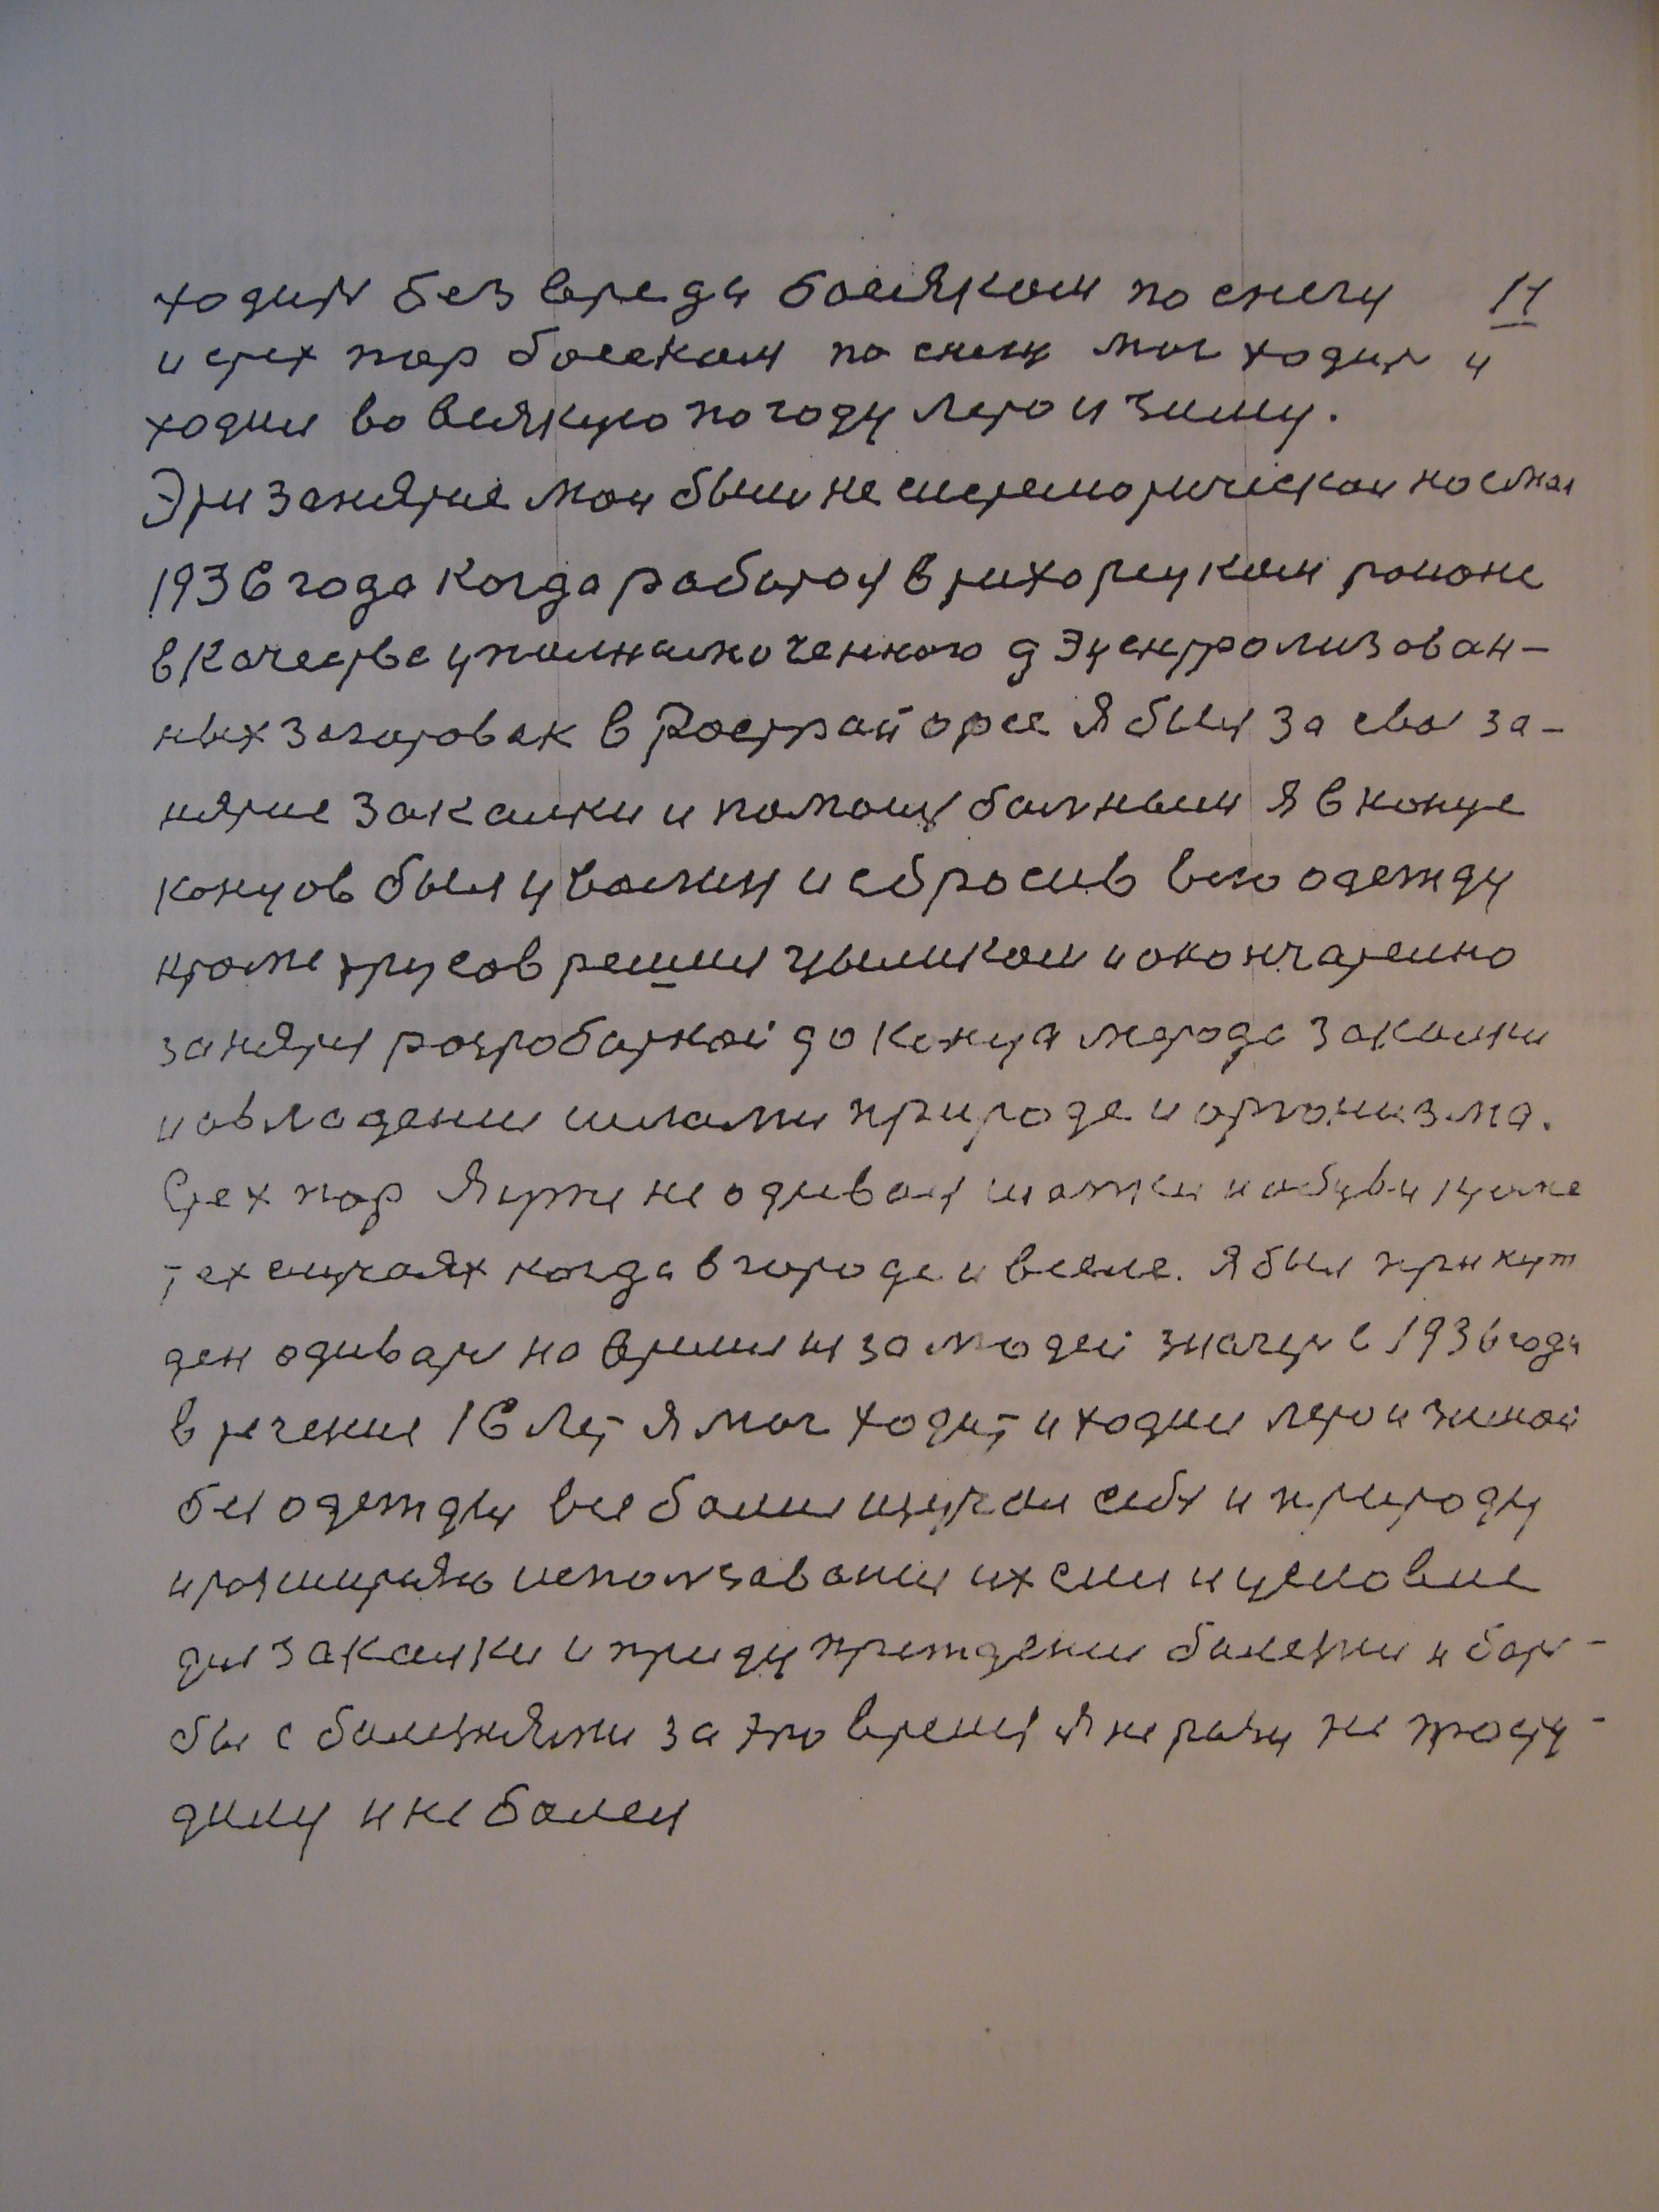 ходит без вреда босяком по снегу 11
и стех пор босеком по снегу мог ходит и
ходил во всякую погоду лето и зиму.
Эти занятие мои были не систематическои но с мая
1936 года когда работал в тихорецком районе
в качестве уполномоченного дэцентрализован-
ных заготовак в Рострайорсе я был за сво за-
нятие закалки и помощ больным я в конце
концов был уволин и сбросив всю одежду
кроме трусов решил цыликом и окончательно
занятся розработкой до конца метода закалки
и овладении силами природе и организма.
Стех пор я уже не одивал шапки и обуви кроме
тех случаях когда в городе и в селе. Я был принуж
ден одиват на время из за людей значит с 1936 года
в течение 16 лет я мог ходит и ходил лето и зимой
без одежды все больше изучал себя и природу
и расширяю использование их сил и условие
для закалки и придупреждении болезни и бор-
бы с болезнями за это время я не разу не просту-
дилу и не болел